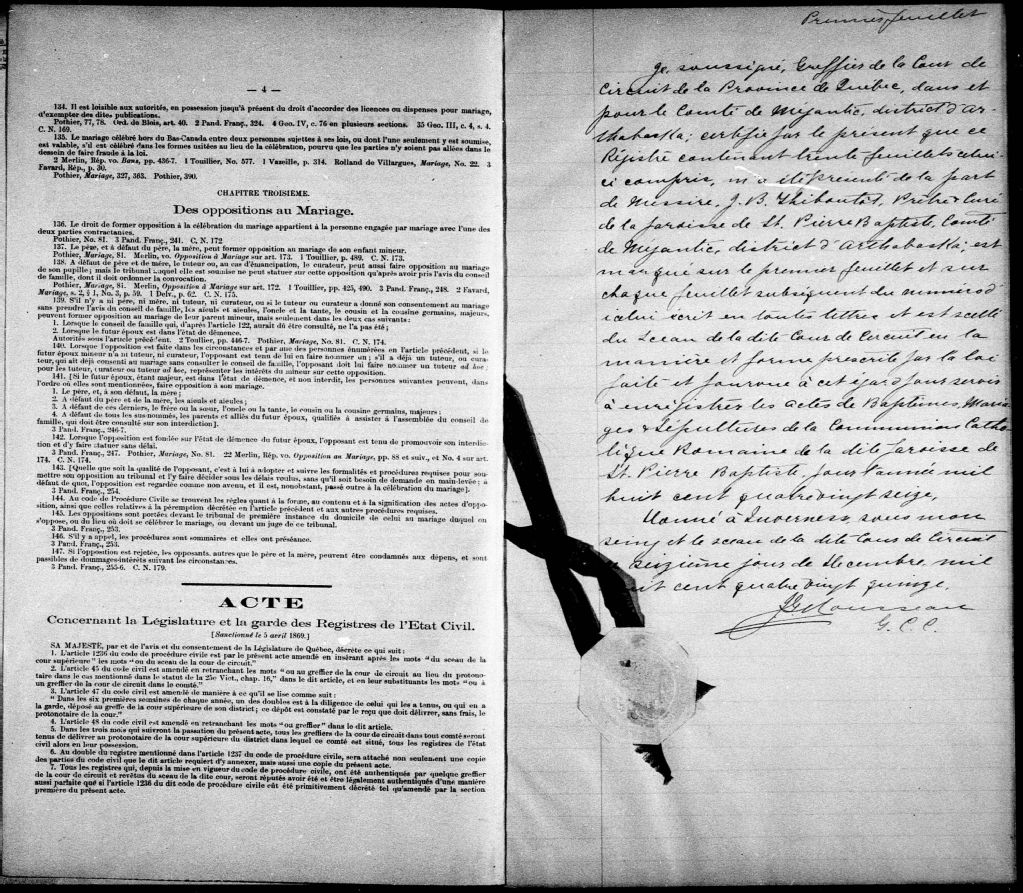 — 4 —
134. Il est loisible aux autorités, en possession jusqu'à présent du droit d'accorder des licences ou dispenses pour mariage,
d'exempter des dites publications.
Pothier, 77, 78. Ord. de Blois, art. 40. 2 Pand. Franç., 324. 4 Geo. IV, c. 76 en plusieurs sections. 35 Geo. III, c. 4, s. 4.
C. N. 169.
135. Le mariage célébré hors du Bas-Canada entre deux personnes sujettes à ses lois, ou dont l'une seulement y est soumise,
est valable, s'il est célébré dans les formes usitées au lieu de la célébration, pourvu que les parties n'y soient pas allées dans le
dessein de faire fraude à la loi.
2 Merlin, Rép. vo. Bans, pp. 436-7. 1 Touillier, No. 577. 1 Vazeille, p. 314. Rolland de Villargues, Mariage, No. 22. 3
Favard, Rép., p. 30.
Pothier, Mariage, 327, 363. Pothier, 390.
CHAPITRE TROISIEME.
Des oppositions au Mariage.
136. Le droit de former opposition à la célébration du mariage appartient à la personne engagée par mariage avec l'une des
deux parties contractantes.
Pothier, No. 81. 3 Pand. Franç., 241. C. N. 172
137. Le père, et à défaut du père, la mère, peut former opposition au mariage de son enfant mineur.
Pothier, Mariage, 81. Merlin, vo. Opposition à Mariage sur art. 173. 1 Touillier, p. 489. C. N. 173.
138. A défaut de père et de mère, le tuteur ou, au cas d'émancipation, le curateur, peut aussi faire opposition au mariage
de son pupille; mais le tribunal auquel elle est soumise ne peut statuer sur cette opposition qu'après avoir pris l'avis du conseil
de famille, dont il doit ordonner la convocation.
Pothier, Mariage, 81. Merlin, Opposition à Mariage sur art. 172. 1 Touillier, pp. 425, 490. 3 Pand. Franç., 248. 2 Favard,
Mariage, s. 2, § 1, No. 3, p. 59. 1 Delv., p. 62. C. N. 175.
139. S'il n'y a ni père, ni mère, ni tuteur, ni curateur, ou si le tuteur ou curateur a donné son consentement au mariage
sans prendre l'avis du conseil de famille, les aïeuls et aïeules, l'oncle et la tante, le cousin et la cousine germains, majeurs,
peuvent former opposition au mariage de leur parent mineur, mais seulement dans les deux cas suivants:
1. Lorsque le conseil de famille qui, d'après l'article 122, aurait dû être consulté, ne l'a pas été;
2. Lorsque le futur époux est dans l'état de démence.
Autorités sous l'article précédent. 2 Toullier, pp. 446-7. Pothier, Mariage, No. 81. C. N. 174.
140. Lorsque l'opposition est faite dans les circonstances et par une des personnes énumérées en l'article précédent, si le
futur époux mineur n'a ni tuteur, ni curateur, l'opposant est tenu de lui en faire nommer un; s'il a déjà un tuteur, ou cura-
teur, qui ait déjà consenti au mariage sans consulter le conseil de famille, l'opposant doit lui faire nommer un tuteur ad hoc;
pour les tuteur, curateur ou tuteur ad hoc, représenter les intérêts du mineur sur cette opposition.
141. [Si le futur époux, étant majeur, est dans l'état de démence, et non interdit, les personnes suivantes peuvent, dans
l'ordre où elles sont mentionnées, faire opposition à son mariage.
1. Le père, et, à son défaut, la mère;
2. A défaut du père et de la mère, les aïeuls et aïeules;
3. A défaut de ces derniers, le frère ou la sœur, l'oncle ou la tante, le cousin ou la cousine germains, majeurs;
4. A défaut de tous les sus-nommés, les parents et alliés du futur époux, qualifiés à assister à l'assemblée du conseil de
famille, qui doit être consulté sur son interdiction].
3 Pand. Franç., 246-7.
142. Lorsque l'opposition est fondée sur l'état de démence du futur époux, l'opposant est tenu de promouvoir son interdic-
tion et d'y faire statuer sans délai.
3 Pand. Franç., 247. Pothier, Mariage, No. 81. 22 Merlin, Rép. vo. Opposition au Mariage, pp. 88 et suiv., et No. 4 sur art.
174. C. N. 174.
143. [Quelle que soit la qualité de l'opposant, c'est à lui à adopter et suivre les formalités et procédures requises pour sou-
mettre son opposition au tribunal et l'y faire décider sous les délais voulus, sans qu'il soit besoin de demande en main-levée; à
défaut de quoi, l'opposition est regardée comme non avenu, et il est, nonobstant, passé outre à la célébration du mariage].
3 Pand. Franç., 254.
144. Au code de Procédure Civile se trouvent les règles quant à la forme, au contenu et à la signification des actes d'oppo-
sition, ainsi que celles relatives à la péremption décrétée en l'article précédent et aux autres procédures requises.
145. Les oppositions sont portées devant le tribunal de première instance du domicile de celui au mariage duquel on
s'oppose, ou du lieu où doit se célébrer le mariage, ou devant un juge de ce tribunal.
3 Pand. Franç., 253.
146. S'il y a appel, les procédures sont sommaires et elles ont préséance.
3 Pand. Franç., 253.
147. Si l'opposition est rejetée, les opposants, autres que le père et la mère, peuvent être condamnés aux dépens, et sont
passibles de dommages-intérêts suivant les circonstances.
3 Pand. Franç., 255-6. C. N. 179.
ACTE
Concernant la Législature et la garde des Registres de l'Etat Civil.
[Sanctionné le 5 avril 1869.]
SA MAJESTÉ, par et de l'avis et du consentement de la Législature de Québec, décrète ce qui suit:
1. L'article 1236 du code de procédure civile est par le présent acte amendé en insérant après les mots "du sceau de la
cour supérieure" les mots "ou du sceau de la cour de circuit."
2. L'article 45 du code civil est amendé en retranchant les mots "ou au greffier de la cour de circuit au lieu du protono-
taire dans le cas mentionné dans le statut de la 25e Vict., chap. 16," dans le dit article, et en leur substituants les mots "ou à
un greffier de la cour de circuit dans le comté."
3. L'article 47 du code civil est amendé de manière à ce qu'il se lise comme suit:
"Dans les six premières semaines de chaque année, un des doubles est à la diligence de celui qui les a tenus, ou qui en a
la garde, déposé au greffe de la cour supérieure de son district; ce dépôt est constaté par le reçu que doit délivrer, sans frais, le
protonotaire de la cour."
4. L'article 48 du code civil est amendé en retranchant les mots "ou greffier" dans le dit article.
5. Dans les trois mois qui suivront la passation du présent acte, tous les greffiers de la cour de circuit dans tout comté seront
tenus de délivrer au protonotaire de la cour supérieure du district dans lequel ce comté est situé, tous les registres de l'état
civil alors en leur possession.
6. Au double du registre mentionné dans l'article 1237 du code de procédure civile, sera attaché non seulement une copie
des parties du code civil que le dit article requiert d'y annexer, mais aussi une copie du présent acte.
7. Tous les registres qui, depuis la mise en vigueur du code de procédure civile, ont été authentiqués par quelque greffier
de la cour de circuit et revêtus du sceau de la dite cour, seront réputés avoir été et être légalement authentiqués d'une manière
aussi parfaite que si l'article 1236 du dit code de procédure civile eût été primitivement décrété tel qu'amendé par la section
première du présent acte.
Premier feuillet
Je, soussigné, Greffier de la Cour de
Circuit de la Province de Québec, dans et
pour le Comté de Mégantic, district d'ar-
thabaska; certifie par le présent que ce
Régistre contenant trente feuillets celui-
ci compris, m'a été présenté de la part
de Messire, J. B. Thiboutot, Prêtre & Curé
de la paroisse de St. Pierre Baptiste, Comté
de Mégantic, district d'Arthabaska; est
marqué sur le premier feuillet et sur
chaque feuillet subséquent du numéro d'
icelui écrit en toutes lettres et est scellé
du Sceau de la dite Cour de Circuit en la
manière et forme prescrite par la loi
faite et pourvue à cet égard pour servir
à enregistrer les actes de Baptêmes, Maria-
ges & Sépultures de la Communion Catho-
lique Romaine de la dite paroisse de
St. Pierre Baptiste, pour l'année mil
huit cent quatre vingt seize,
Donné à Inverness, sous mon
seing et le sceau de la dite Cour de Circuit
seizième jour de Décembre, mil
huit cent quatre vingt quinze.
Mousseau
G. C. C.